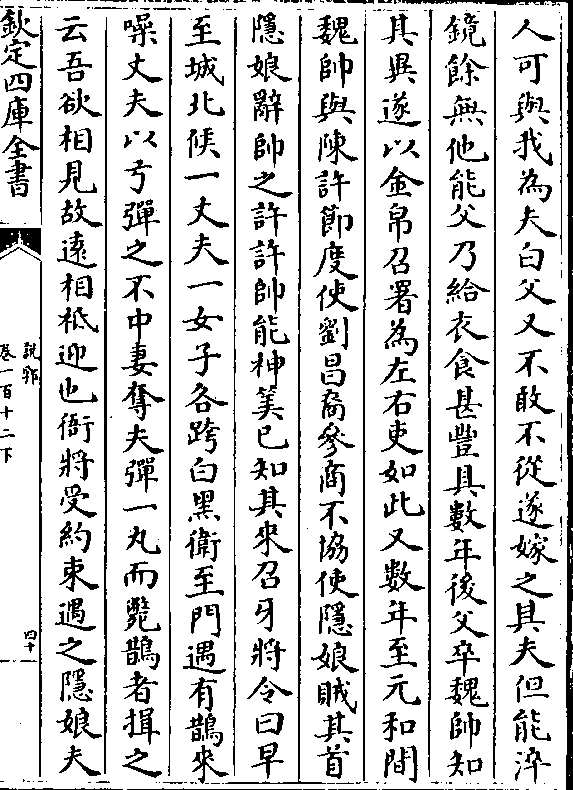 人可與我為夫白父又不敢不從遂嫁之其夫但能淬
鏡餘無他能父乃給衣食甚豐具數年後父卒魏帥知
其異遂以金帛召署為左右吏如此又數年至元和間
魏帥與陳許節度使劉昌裔參商不協使隱娘賊其首
隱娘辭帥之許許帥能神筭已知其來召牙將令曰早
至城北候一丈夫一女子各跨白黑衛至門遇有鵲來
噪丈夫以弓彈之不中妻奪夫彈一丸而斃鵲者揖之
云吾欲相見故遠相祗迎也衙將受約束遇之隱娘夫
欽定四庫全書
說郛
卷一百十二下
四十